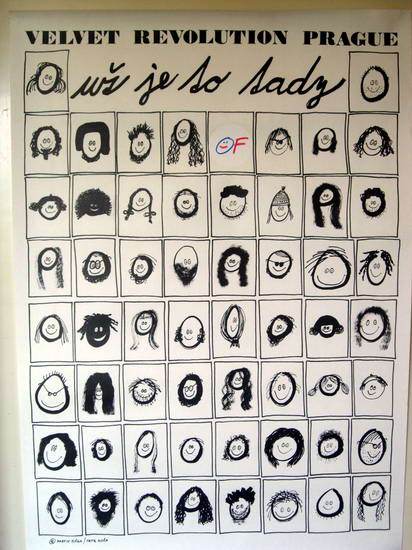 VELVET REVOLUTION PRAGUE
už je to tady
OF